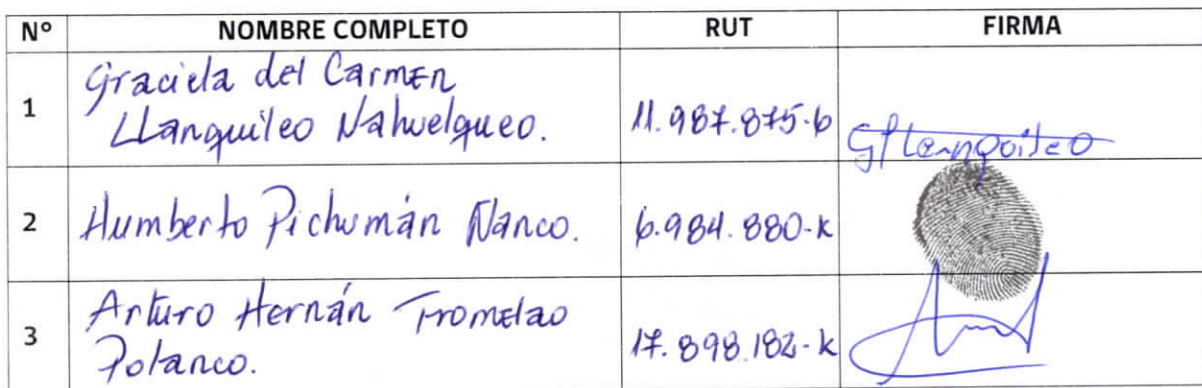 Nº NOMBRE COMPLETO RUT FIRMA
1 Graciela del Carmen
Llanquileo Nahuelqueo. 11.987.875-6 GLlanquileo
2 Humberto Pichumán Ñanco. 6.984.880-K
3 Arturo Hernán Tromelao
Polanco. 17.898.182-K